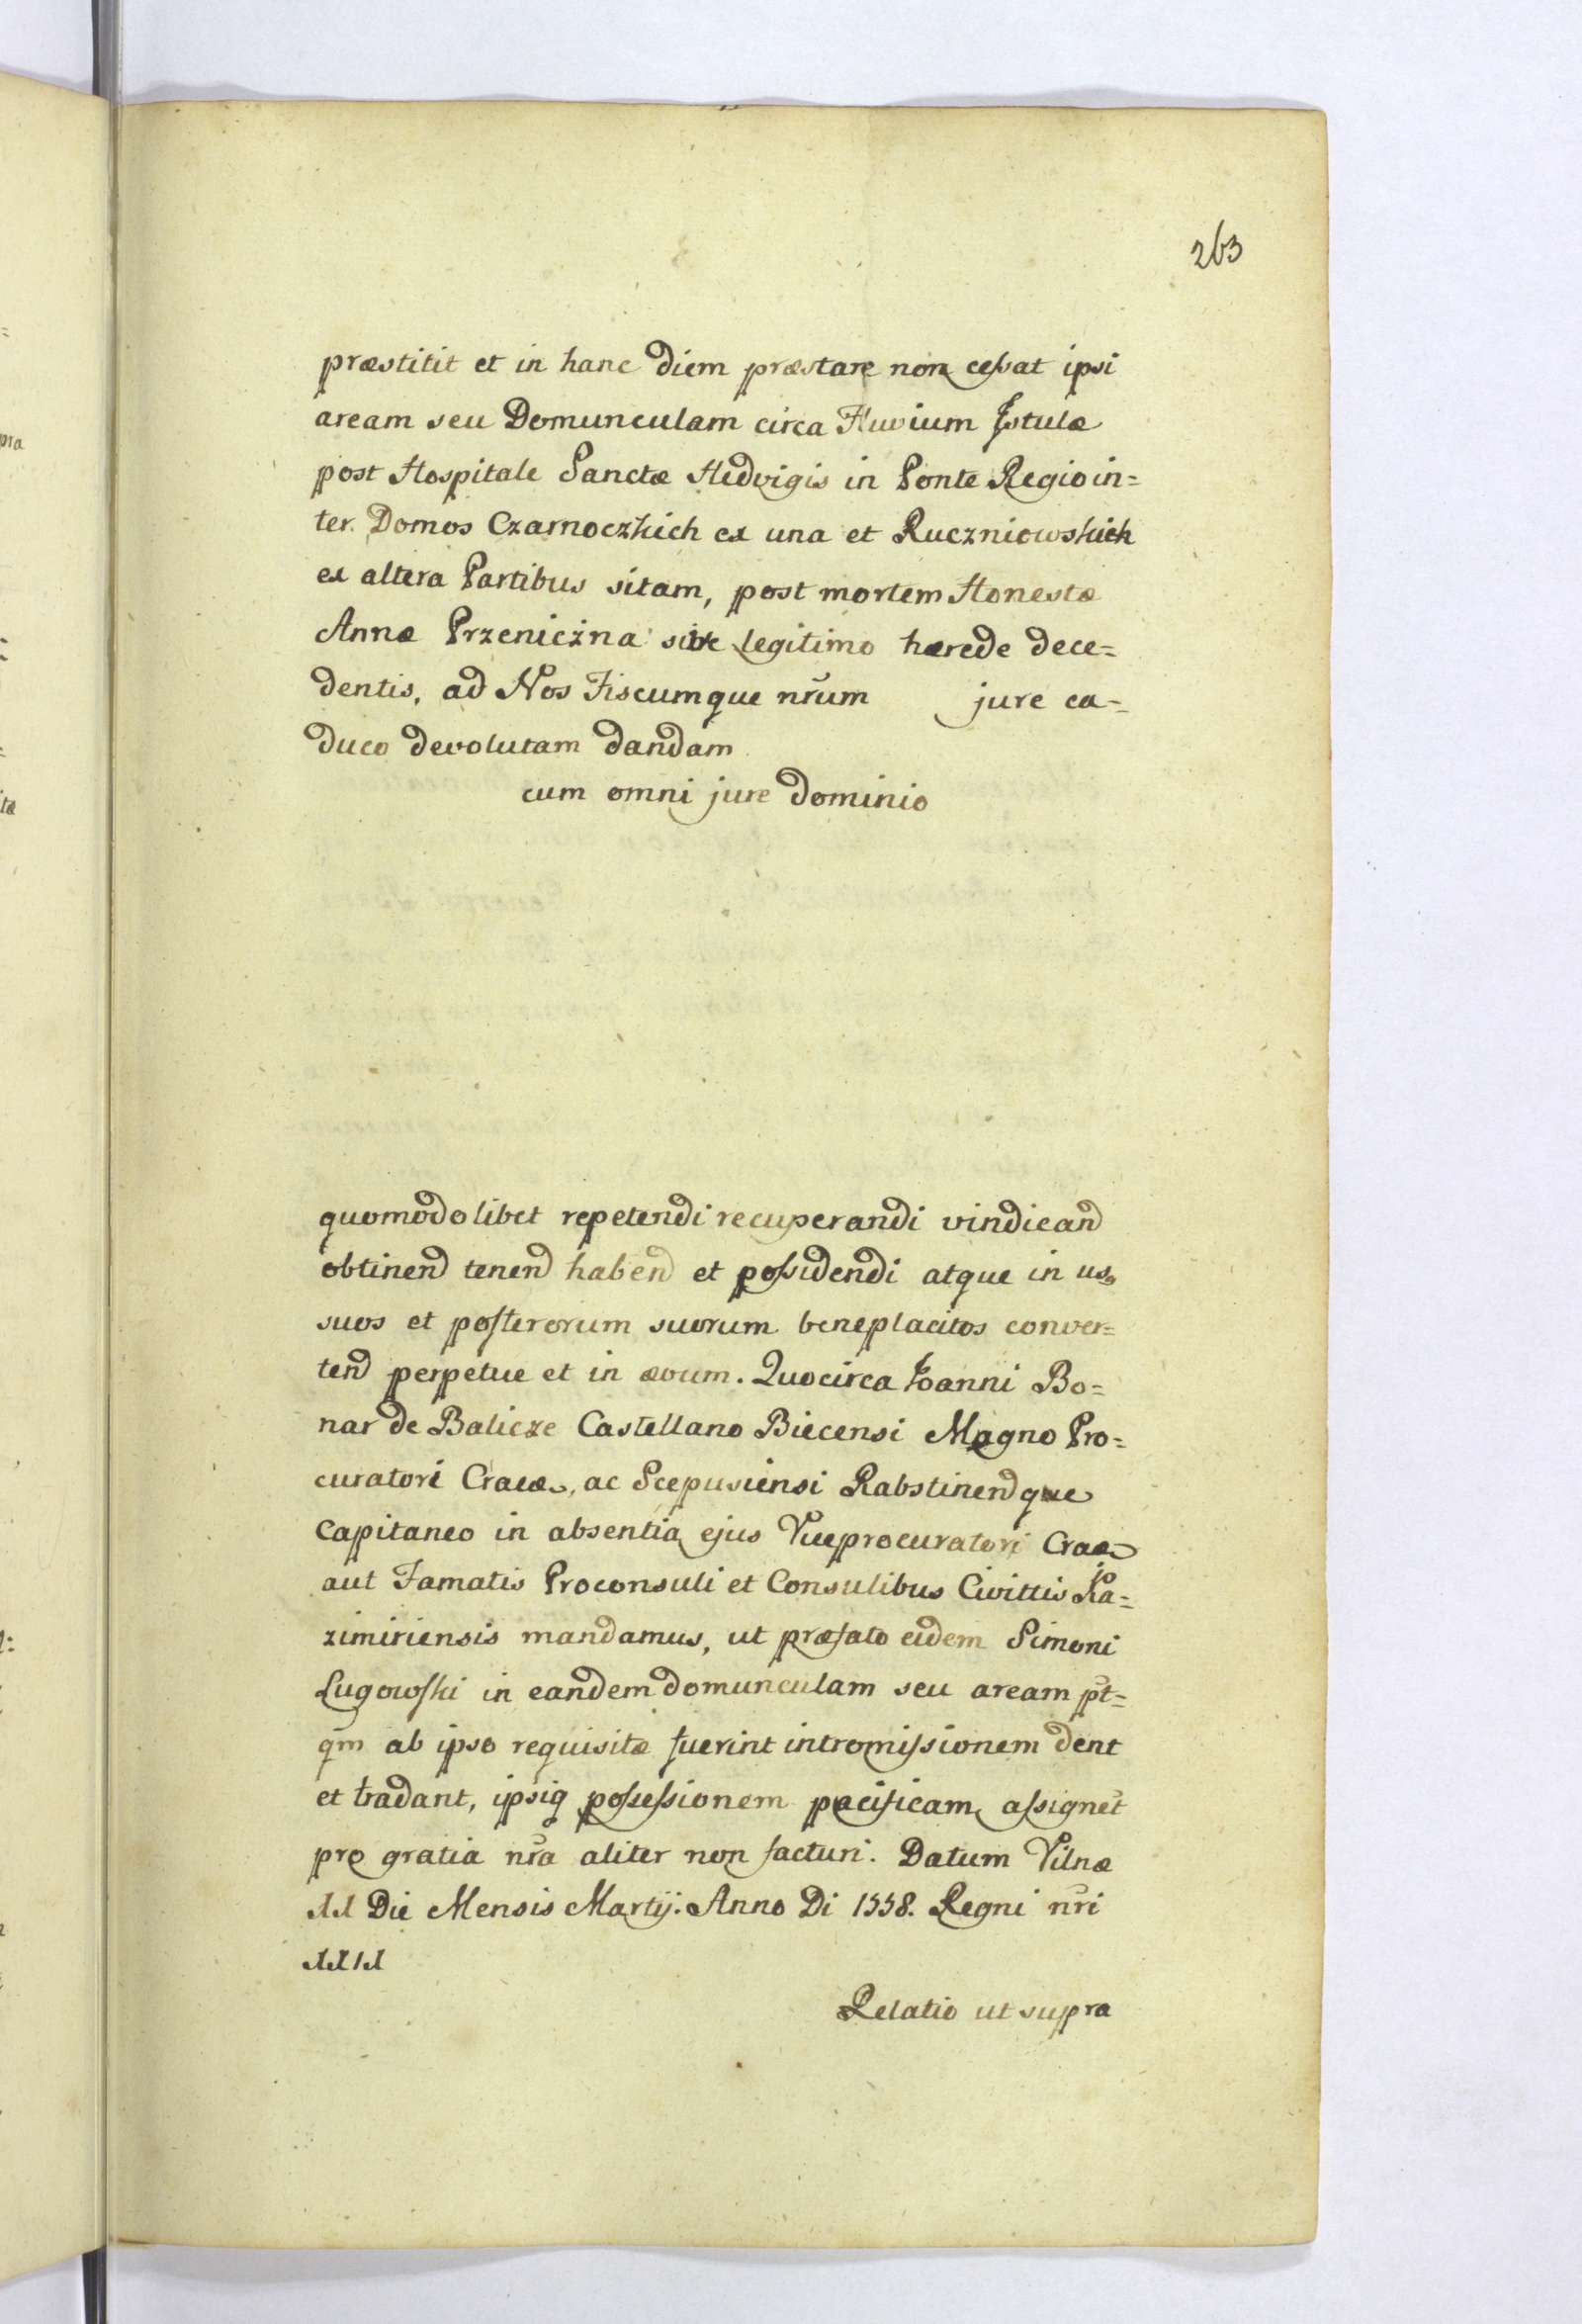 263
præstitit et in hanc diem præstare non cessat ipsi
aream seu Domunculam circa Fluvium Istulæ
post Hospitale Sanctæ Hedvigis in Ponte Regio in=
ter Domos Czarnoczkich ex una et Ruczniowskich
ex altera Partibus sitam, post mortem Honestæ
Annæ Przeniczna sive legitimo hærede dece=
dentis, ad Nos Fiscumque nrum jure ca=
duco devolutam dandam
cum omni jure dominio
quomodolibet repetendi recuperandi vindicand
obtinend tenend habend et possidendi atque in us
suos et posterorum suorum beneplacitos conver=
tend perpetue et in ævum. Quocirca Ioanni Bo=
nar de Balicze Castellano Biecensi Magno Pro=
curatori Cracæ, ac Scepusiensi Rabstinendque
Capitaneo in absentia ejus Viceprocuratori Cracæ
aut Famatis Proconsuli et Consulibus Civittis Ka=
zimiriensis mandamus, ut præfato eidem Simoni
Lugowski in eandem domunculam seu aream pt=
qm ab ipso requisitæ fuerint intromissionem dent
et tradant, ipsiq possessionem pacificam assignet
pro gratia nra aliter non facturi. Datum Vilnæ
Die Mensis Martij. Anno Di 1558. Regni nri
Relatio ut supra